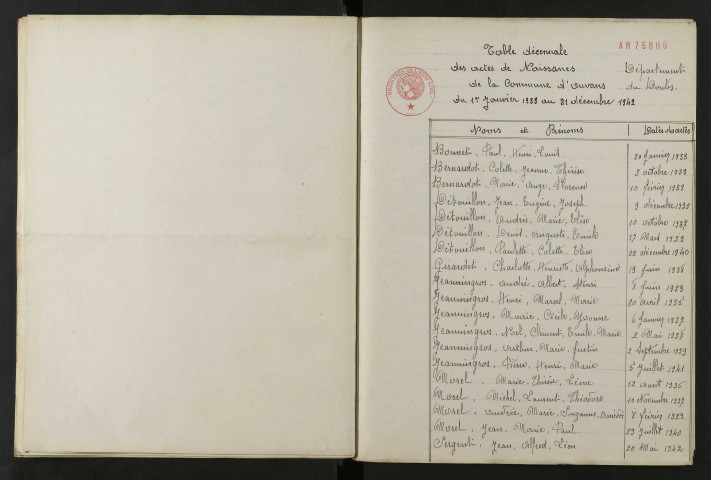 AR 75800
Table décennale
des actes de Naissances
de la Commune d'Auvans
du 1er Janvier 1933 au 31 décembre 1942
Département
du Doubs.
Noms et Prénoms
Dates des actes
Bonnet, Paul, Henri, Louis 20 janvier 1933
Bernardot, Colette, Jeanne, Thérèse 3 octobre 1933
Bernardot, Marie, Ange, Florence 10 février 1939
Détouillon, Jean, Eugène, Joseph 9 décembre 1935
Détouillon, Andrée, Marie, Elise 10 octobre 1937
Détouillon, Denis, Auguste, Emile 17 Mars 1939
Détouillon, Paulette, Colette, Elise 22 décembre 1940
Girardet, Charlotte, Henriette, Alphonsine 19 juin 1938
Jeanningros, André, Albert, Henri 8 juin 1933
Jeanningros, Henri, Marcel, Marie 20 avril 1935
Jeanningros, Marie, Cécile, Yvonne 6 Janvier 1937
Jeanningros, Noël, Clément, Emile, Marie 2 Mai 1938
Jeanningros, Arthur, Marie, Justin 2 Septembre 1939
Jeanningros, Pierre, Henri, Marie 5 Juillet 1941
Morel, Marie, Thérèse, Léone 12 août 1936
Morel, Michel, Laurent, Théodore 10 Novembre 1937
Morel, Andrée, Marie, Suzanne, Amédée 8 février 1939
Morel, Jean, Marie, Paul 23 juillet 1940
Sergent, Jean, Alfred, Léon 20 Mai 1942